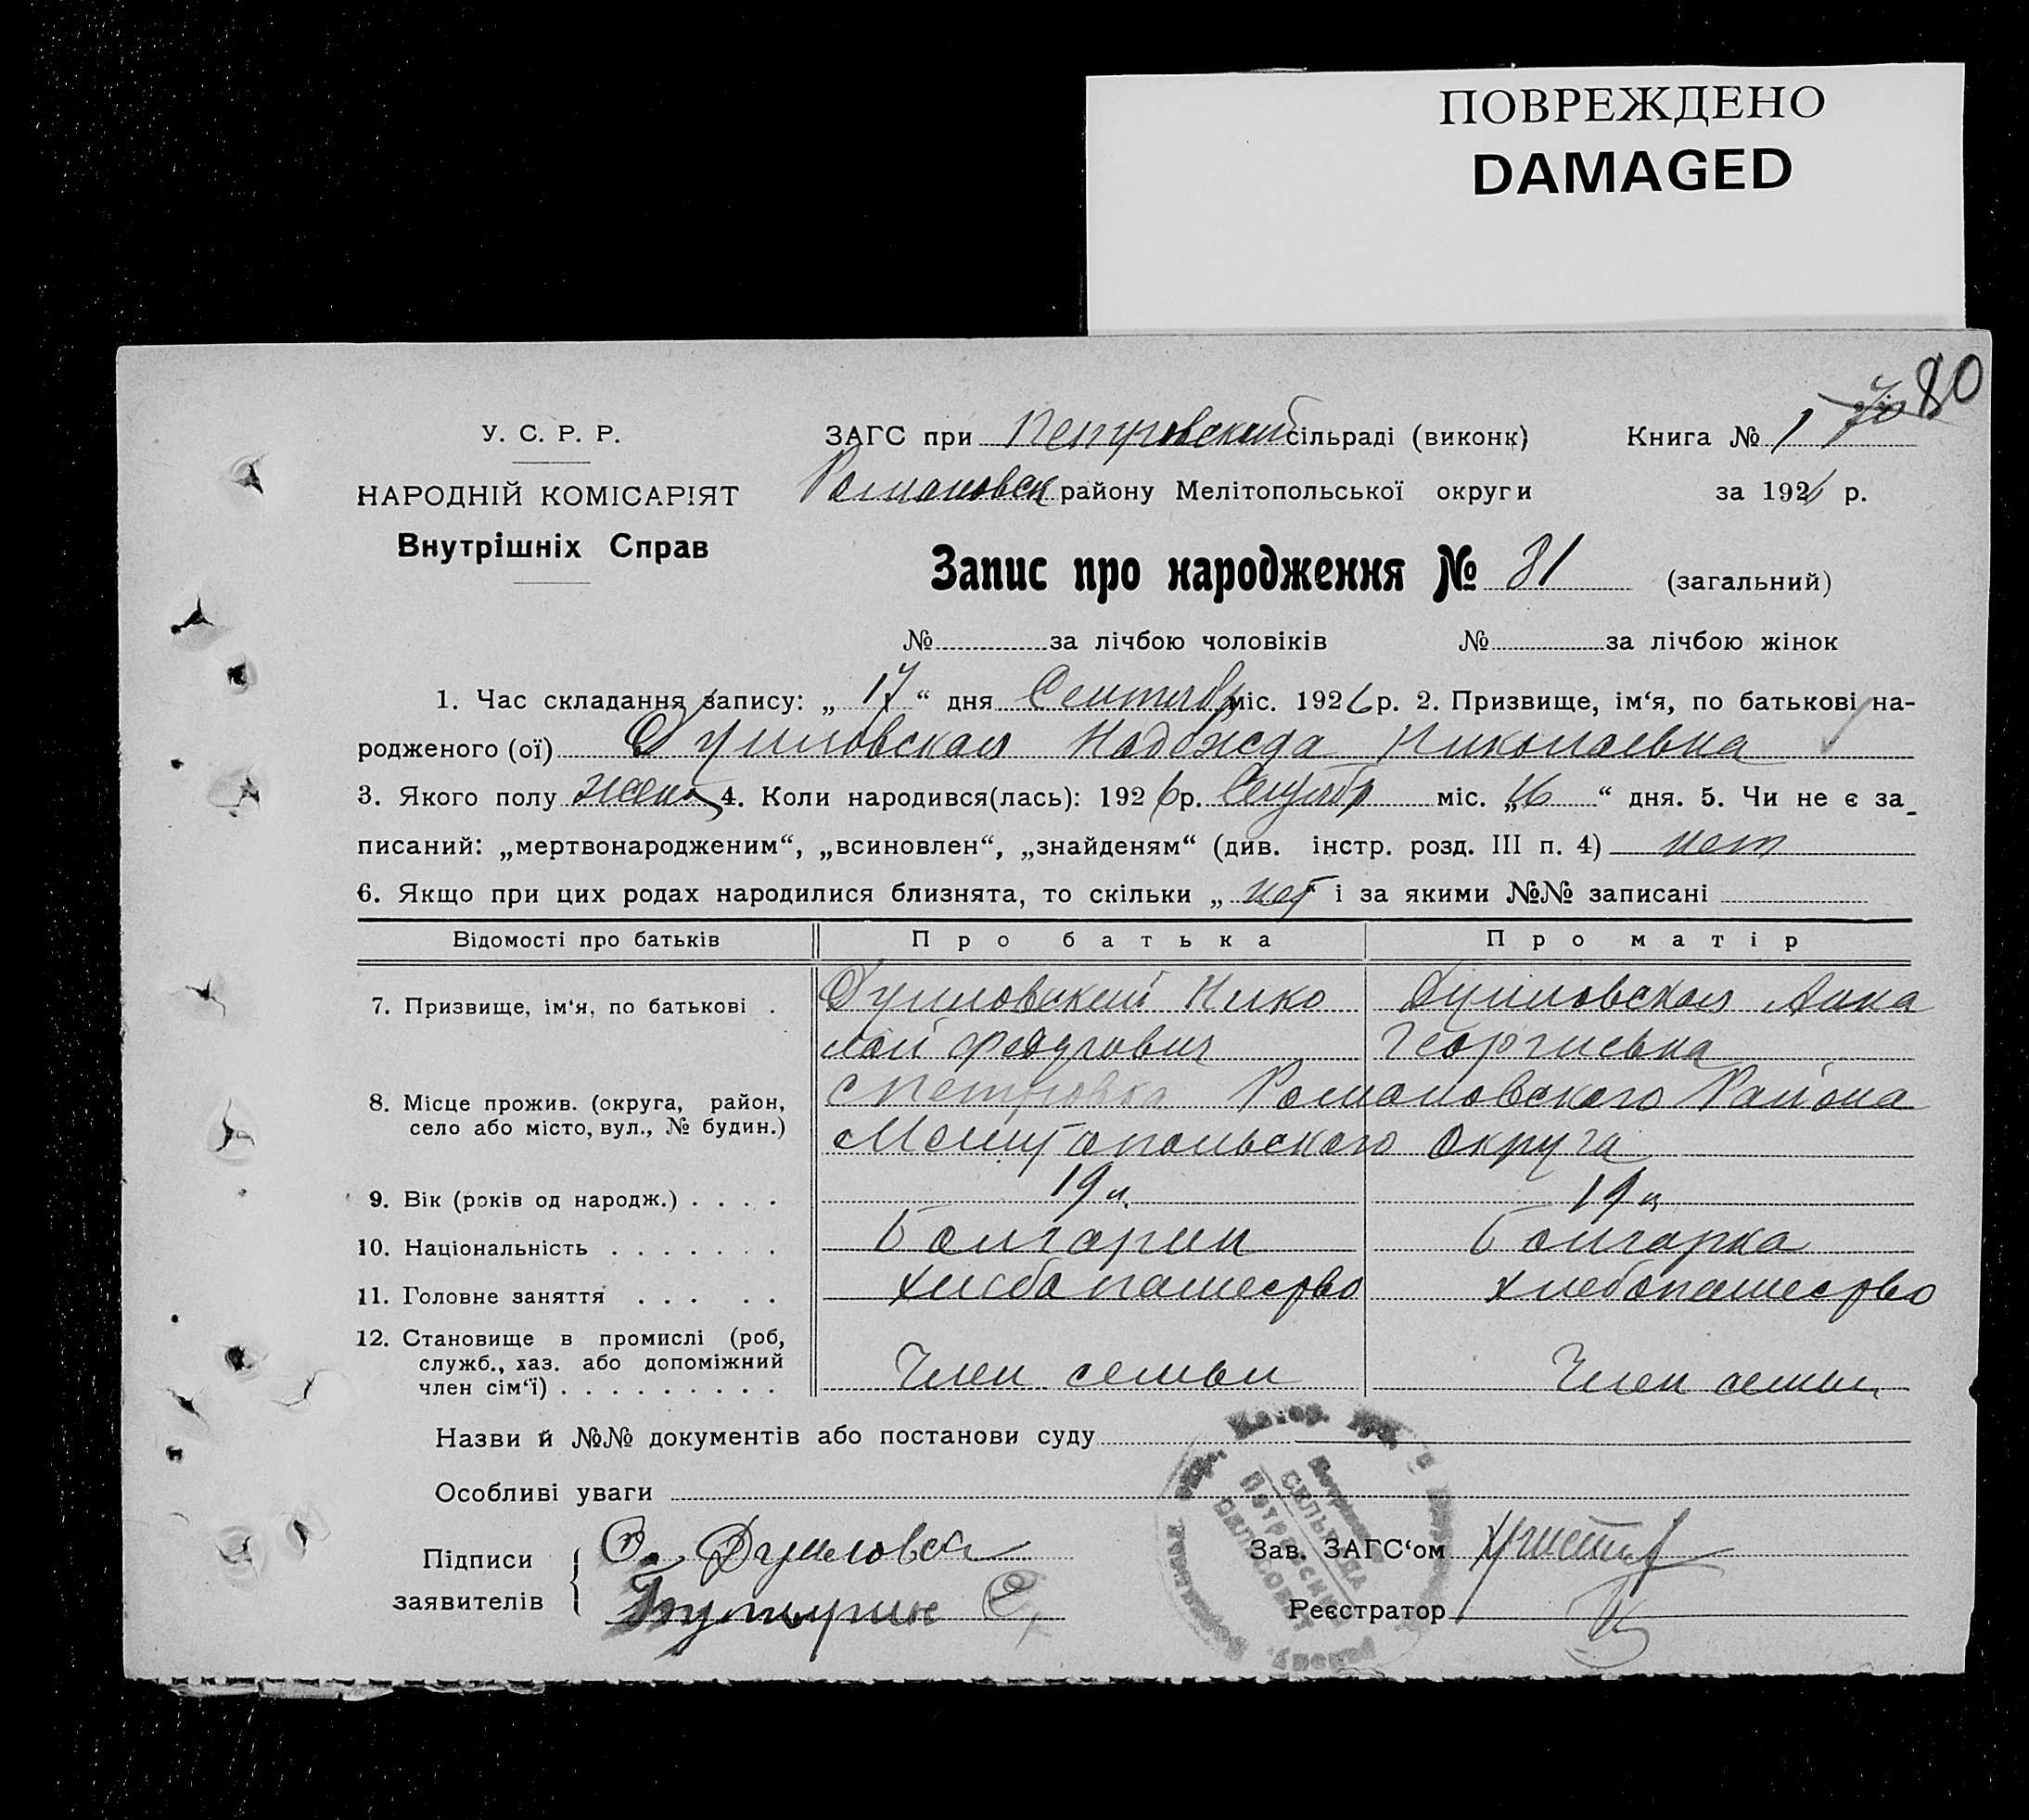 ПОВРЕЖДЕНО
DAMAGED
80
У. С. Р. Р.
НАРОДНІЙ КОМІСАРІЯТ
Внутрішніх Справ
ЗАГС при Петровский сільраді (виконк) Книга № 1
Романовск району Мелітопольської округи за 1926 р.
Запис про народження № 81 (загальний)
№ за лічбою чоловіків № за лічбою жінок
1. Час складання запису: „ 17 “ дня Сентябр міс. 1926 р. 2. Призвище, ім‘я, по батькові на-
родженого (ої) Думловская Надежда Николаевна
3. Якого полу жен 4. Коли народився(лась): 1926 р. Сентябр міс. „16 “ дня. 5. Чи не є за-
писаний: „мертвонародженим“, „всиновлен“, „знайденям“ (див. інстр. розд. III п. 4) нет
6. Якщо при цих родах народилися близнята, то скільки „ нет “ і за якими №№ записані
Відомості про батьків Про батька Про матір
7. Призвище, ім‘я, по батькові . Думловский Нико Думловская Анна
лай Федорович Георгиевна
8. Місце прожив. (округа, район, с Петровка Романовского Района
село або місто, вул., № будин.) Мелитопольского округа
9. Вік (років од народж.) . . . . 19 л. 19 л.
10. Національність . . . . . . . Болгарин Болгарка
11. Головне заняття . . . . . хлебопашество хлебопашество
12. Становище в промислі (роб,
служб., хаз. або допоміжний
член сім‘ї) . . . . . . . . . Член семьи Член семьи
Назви й №№ документів або постанови суду
Особливі уваги
Підписи Думловск
заявителів
Зав. ЗАГС‘ом
Реєстратор